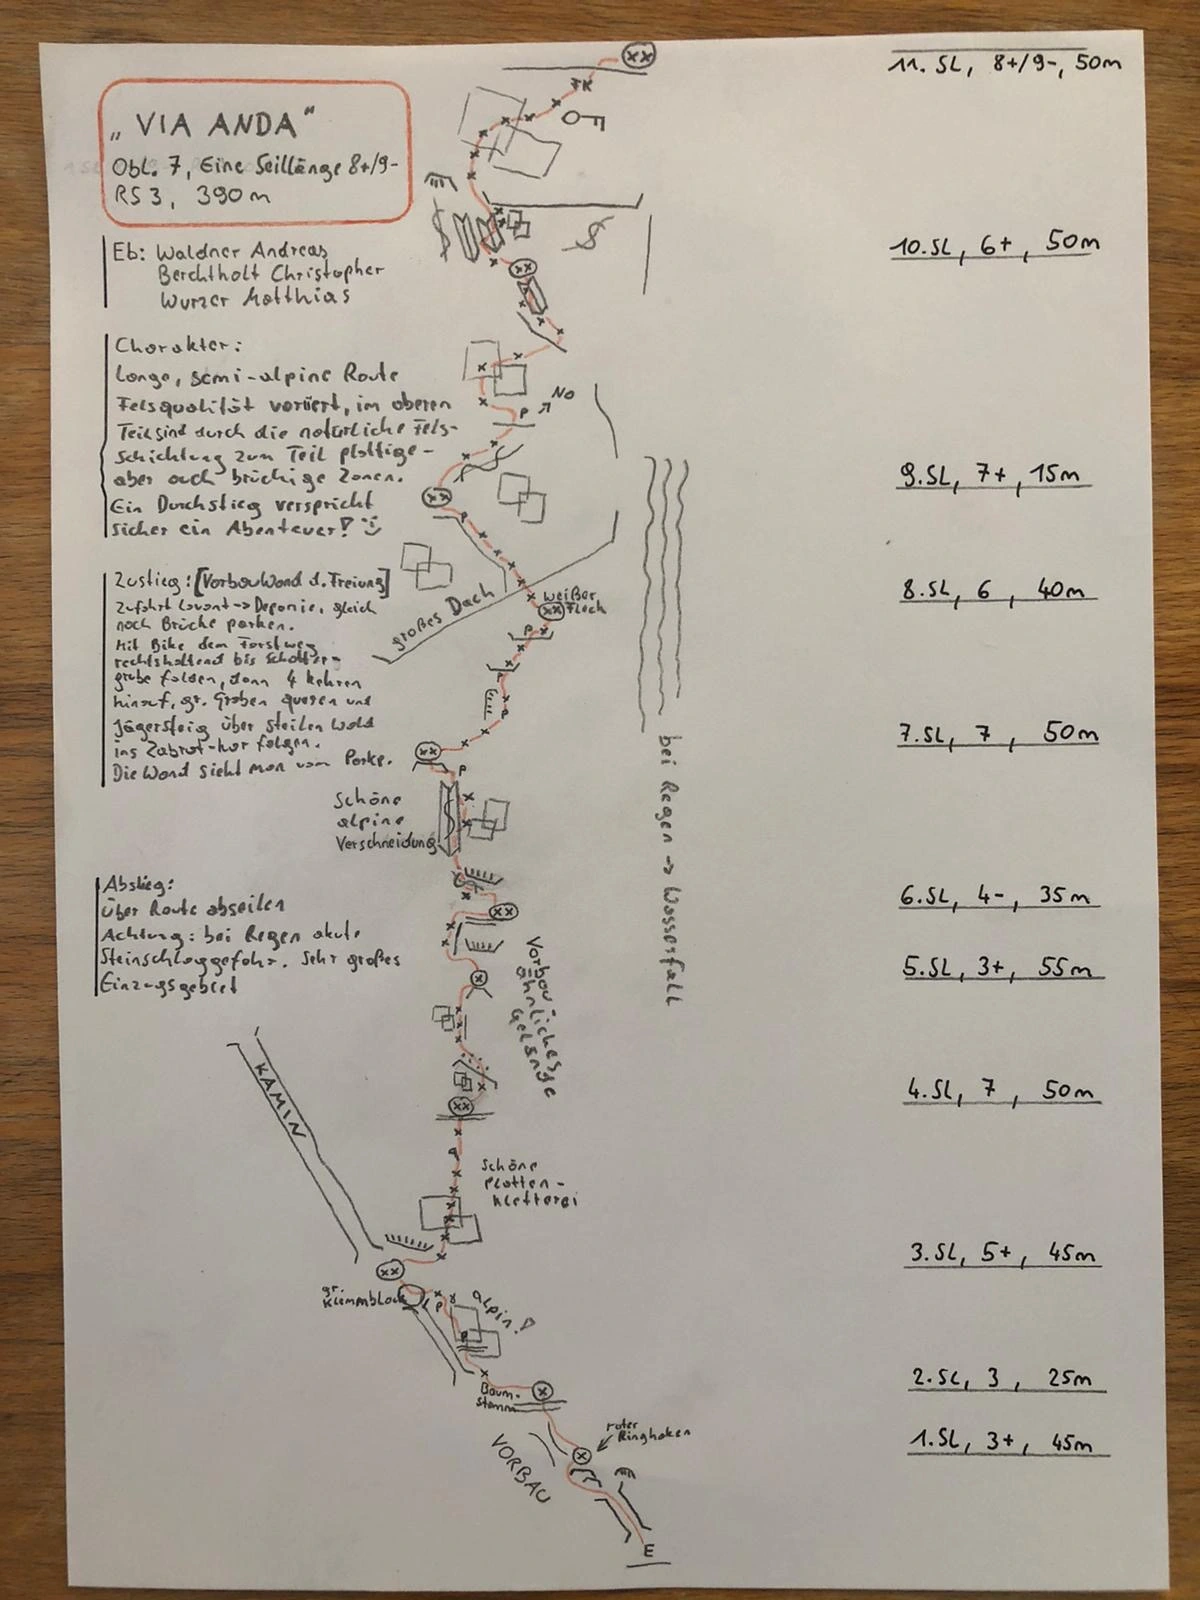 „VIA ANDA"
Obl. 7, Eine Seillänge 8+/9-
RS 3, 390m
Eb: Waldner Andreas
Berchtholt Christopher
Wurzer Matthias
Charakter:
Lange, semi-alpine Route
Felsqualität variiert, im oberen
Teil sind durch die natürliche Fels-
schichtung zum Teil plattige-
aber auch brüchige Zonen.
Ein Durchstieg verspricht
sicher ein Abenteuer!
Zustieg: [Vorbauwand d. Freiung]
Zufahrt Lavant -> Deponie, gleich
nach Brücke parken.
Mit Bike dem Forstweg
rechtshaltend bis Schotter-
grube folgen, dann 4 Kehren
hinauf, gr. Graben queren und
Jägersteig über steilen Wald
ins Zabrot-kar folgen.
Die Wand sieht man vom Parkp.
Abstieg:
Über Route abseilen
Achtung: bei Regen akute
Steinschlaggefahr. Sehr großes
Einzugsgebiet
11. SL, 8+/9-, 50m
10.SL, 6+, 50m
9.SL, 7+, 15m
8.SL, 6, 40m
7.SL, 7, 50m
6.SL, 4-, 35m
5.SL, 3+, 55m
4.SL, 7, 50m
3.SL, 5+, 45m
2.SL, 3, 25m
1.SL, 3+, 45m
P
No
großes Dach
weißer
Fleck
P
P
Schöne
alpine
Verschneidung
bei Regen -> Wasserfall
Vorbau
ähnliches
Gelände
KAMIN
Schöne
Platten-
kletterei
gr.
Klemmblock
P
alpin!
P
Baum-
stamm
roter
Ringhaken
VORBAU
E